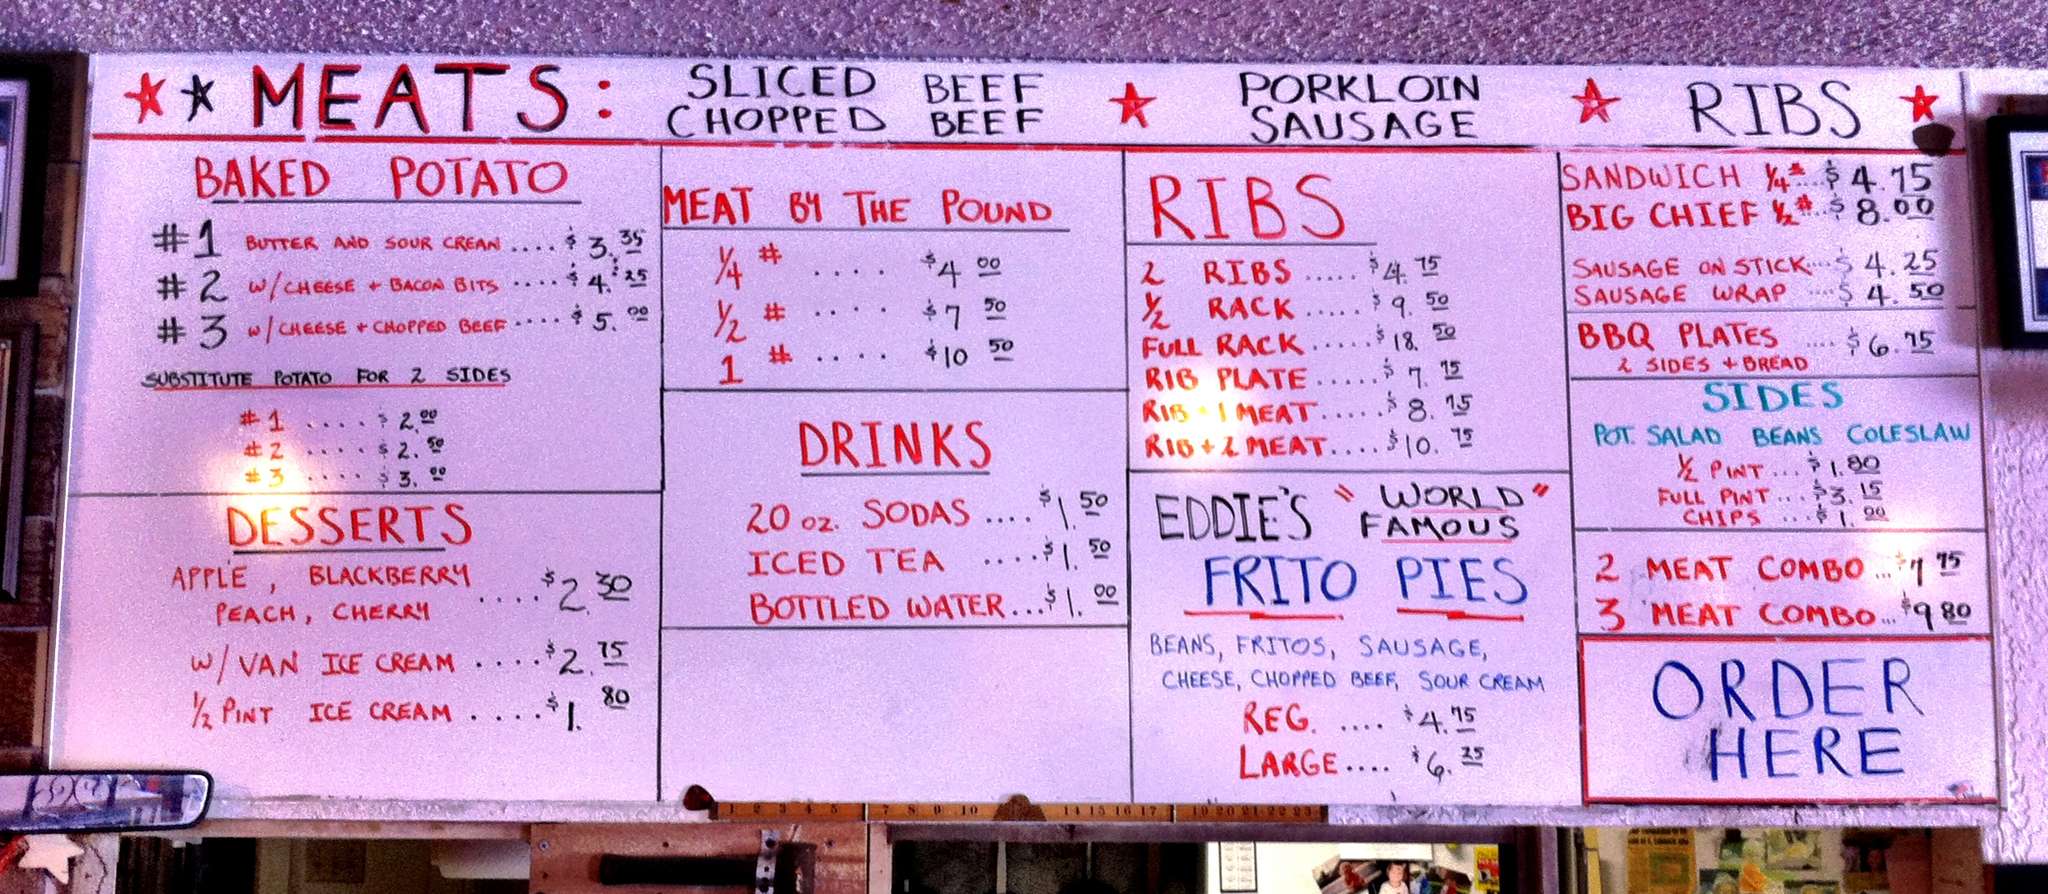 MEATS: SLICED BEEF PORKLOIN RIBS
CHOPPED BEEF SAUSAGE
BAKED POTATO
#1 BUTTER AND SOUR CREAN .... $3.35
#2 W/CHEESE + BACON BITS .... $4.25
#3 W/CHEESE + CHOPPED BEEF .... $5.00
SUBSTITUTE POTATO FOR 2 SIDES
#1 .... $2.00
#2 .... $2.50
#3 .... $3.00
DESSERTS
APPLE, BLACKBERRY
PEACH, CHERRY .... $2.30
W/VAN ICE CREAM .... $2.75
1/2 PINT ICE CREAM .... $1.80
MEAT BY THE POUND
1/4 # .... $4 00
1/2 # .... $7 50
1 # .... $10 50
DRINKS
20 OZ. SODAS .... $1.50
ICED TEA .... $1.50
BOTTLED WATER... $1.00
RIBS
2 RIBS ..... $4.75
1/2 RACK ..... $9.50
FULL RACK ..... $18.50
RIB PLATE ..... $7.75
RIB + 1 MEAT ..... $8.75
RIB + 2 MEAT .... $10.75
EDDIE'S "WORLD
FAMOUS"
FRITO PIES
BEANS, FRITOS, SAUSAGE,
CHEESE, CHOPPED BEEF, SOUR CREAM
REG. .... $4.75
LARGE .... $6.25
SANDWICH 1/4# ... $4.75
BIG CHIEF 1/2# .. $8.00
SAUSAGE ON STICK ... $4.25
SAUSAGE WRAP .... $4.50
BBQ PLATES .... $6.75
2 SIDES + BREAD
SIDES
POT. SALAD BEANS COLESLAW
1/2 PINT ... $1.80
FULL PINT ... $3.15
CHIPS ... $1.00
2 MEAT COMBO ... $7 75
3 MEAT COMBO ... $9 80
ORDER
HERE
1 2 3 4 5 7 8 9 10 14 15 16 17 19 20 21 22 23